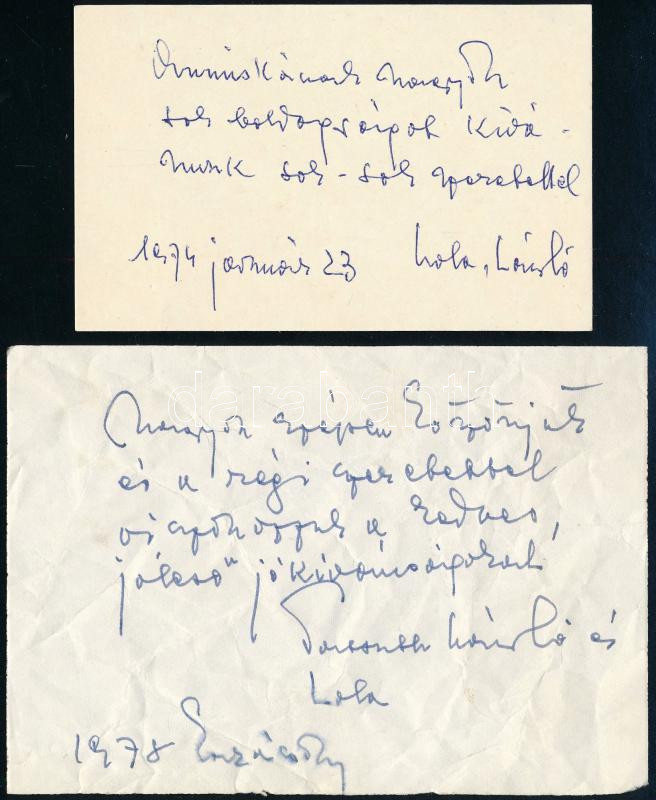 nagyon
sok boldogságot kívá-
nunk sok-sok szeretettel
1974 január 23 Lola, László
darabanth
Nagyon szépen köszönjük
és a régi szeretettel
viszonozzuk a kedves,
jóleső jókívánságokat
László és
Lola
1978 karácsony